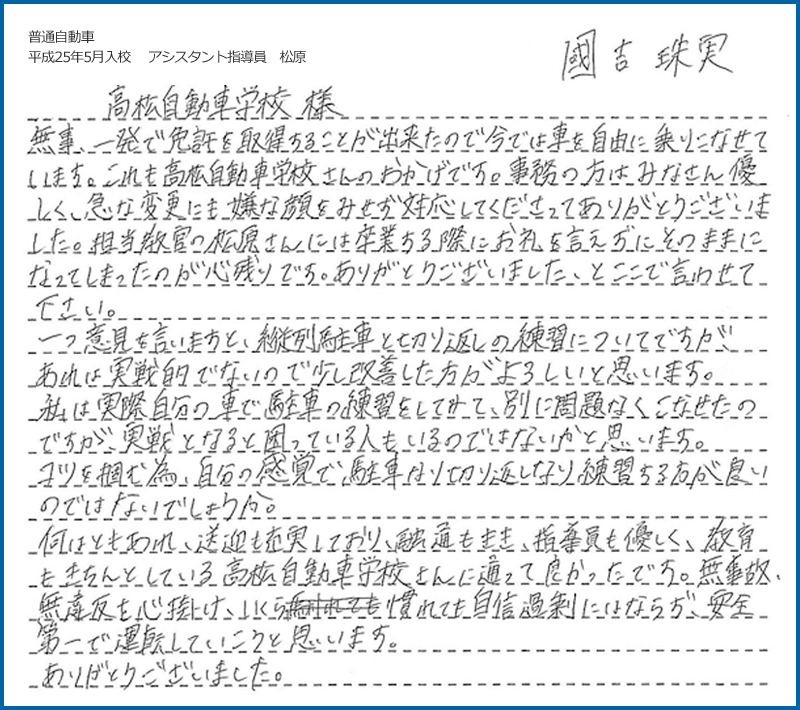 普通自動車
平成25年5月入校　アシスタント指導員　松原
國吉 珠実
高松自動車学校 様
無事、一発で免許を取得することが出来たので今では車を自由に乗りこなせて
います。これも高松自動車学校さんのおかげです。事務の方はみなさん優
しく、急な変更にも嫌な顔をみせず対応してくださってありがとうございま
した。担当教官の松原さんには卒業する際にお礼を言えずにそのままに
なってしまったのが心残りです。ありがとうございました、とここで言わせて
下さい。
一つ意見を言いますと、縦列駐車と切り返しの練習についてですが、
あれは実戦的でないので少し改善した方がよろしいと思います。
私は実際自分の車で駐車の練習をしてみて、別に問題なくこなせたの
ですが、実戦となると困っている人もいるのではないかと思います。
コツを掴む為、自分の感覚で駐車なり切り返しなり練習する方が良い
のではないでしょうか。
何はともあれ、送迎も充実しており、融通もきき、指導員も優しく、教育
もきちんとしている高松自動車学校さんに通って良かったです。無事故、
無違反を心掛け、いくら慣れても自信過剰にはならず、安全
第一で運転していこうと思います。
ありがとうございました。